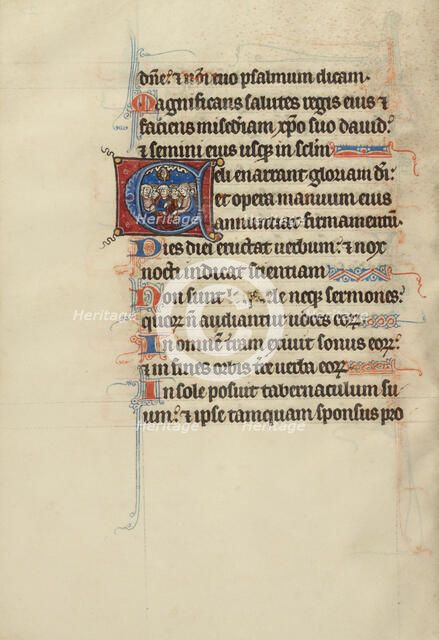 dn̄e: ⁊ nōi tuo psalmum dicam·
Magnificans salutes regis eius ⁊
faciens mis̄diam xp̄o suo dauid:
⁊ semini eius usq̨ in sc̄lm
Celi enarrant gloriam di:
et opera manuum eius
annunciat firmamentū
Dies diei eructat uerbum: ⁊ nox
nocti indicat scientiam
Non sunt neq̨ sermones:
quoꝝ n̄ audiantur uoces eoꝝ
In omnē t̄ram exiuit sonus eoꝝ:
⁊ in fines orbis t̄re uerba eoꝝ
In sole posuit tabernaculum su
um: ⁊ ipse tamquam sponsus pro
Heritage
Heritage
Heritage
Heritage
Heritage